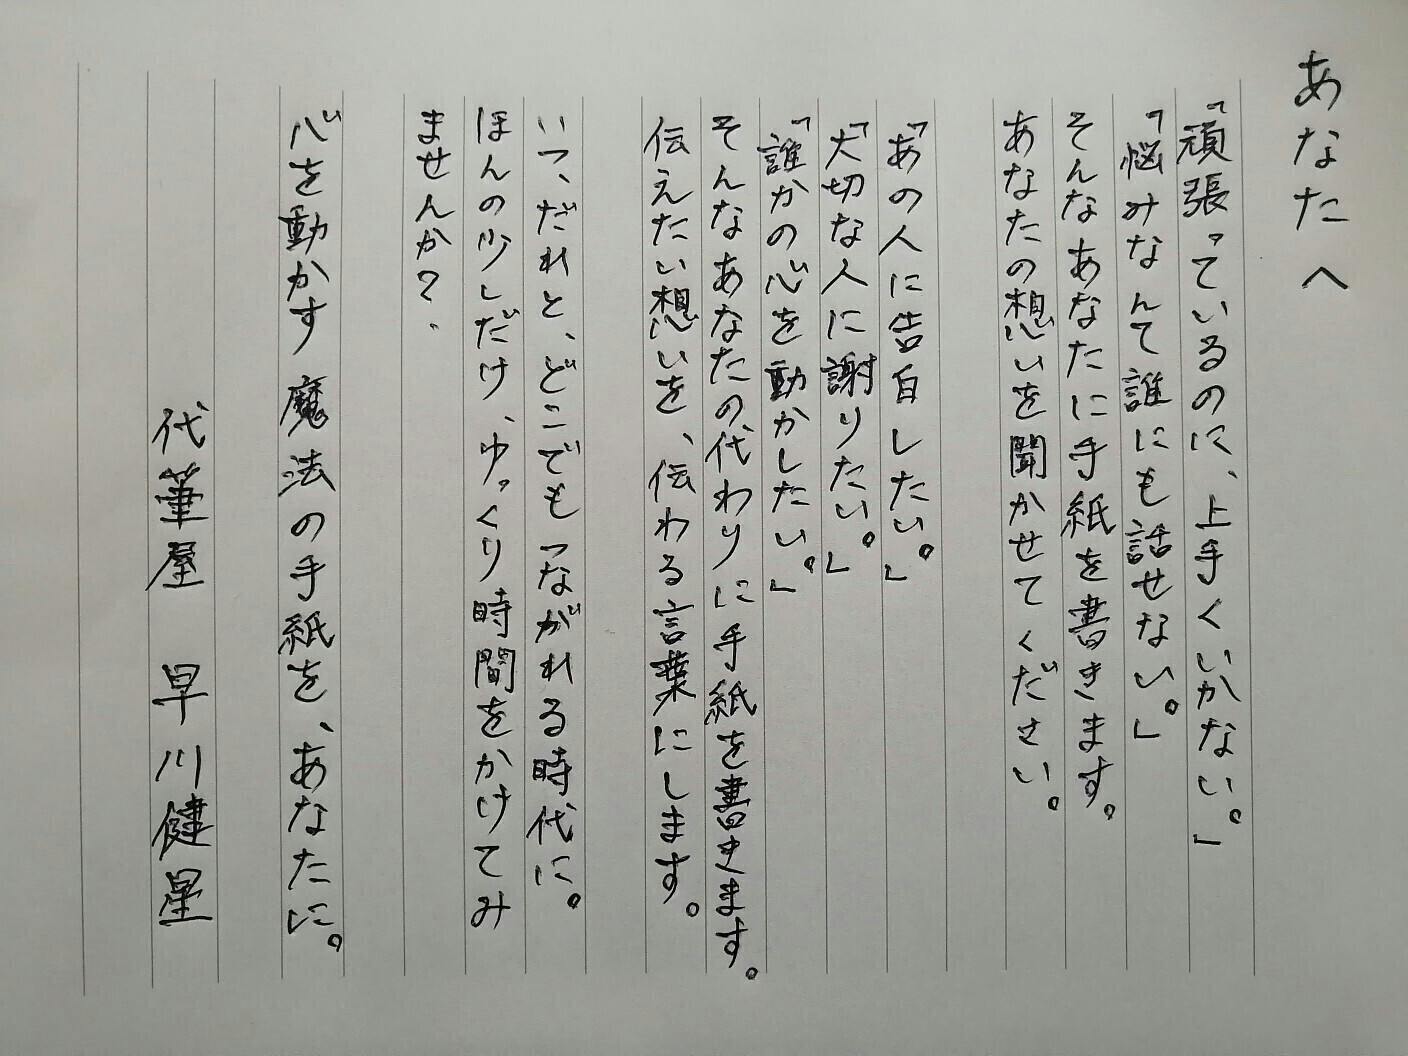 あなたへ
「頑張っているのに、上手くいかない。」
「悩みなんて誰にも話せない。」
そんなあなたに手紙を書きます。
あなたの想いを聞かせてください。
「あの人に告白したい。」
「大切な人に謝りたい。」
「誰かの心を動かしたい。」
そんなあなたの代わりに手紙を書きます。
伝えたい想いを、伝わる言葉にします。
いつ、だれと、どこでもつながれる時代に。
ほんの少しだけ、ゆっくり時間をかけてみ
ませんか?
心を動かす魔法の手紙を、あなたに。
代筆屋 早川健星